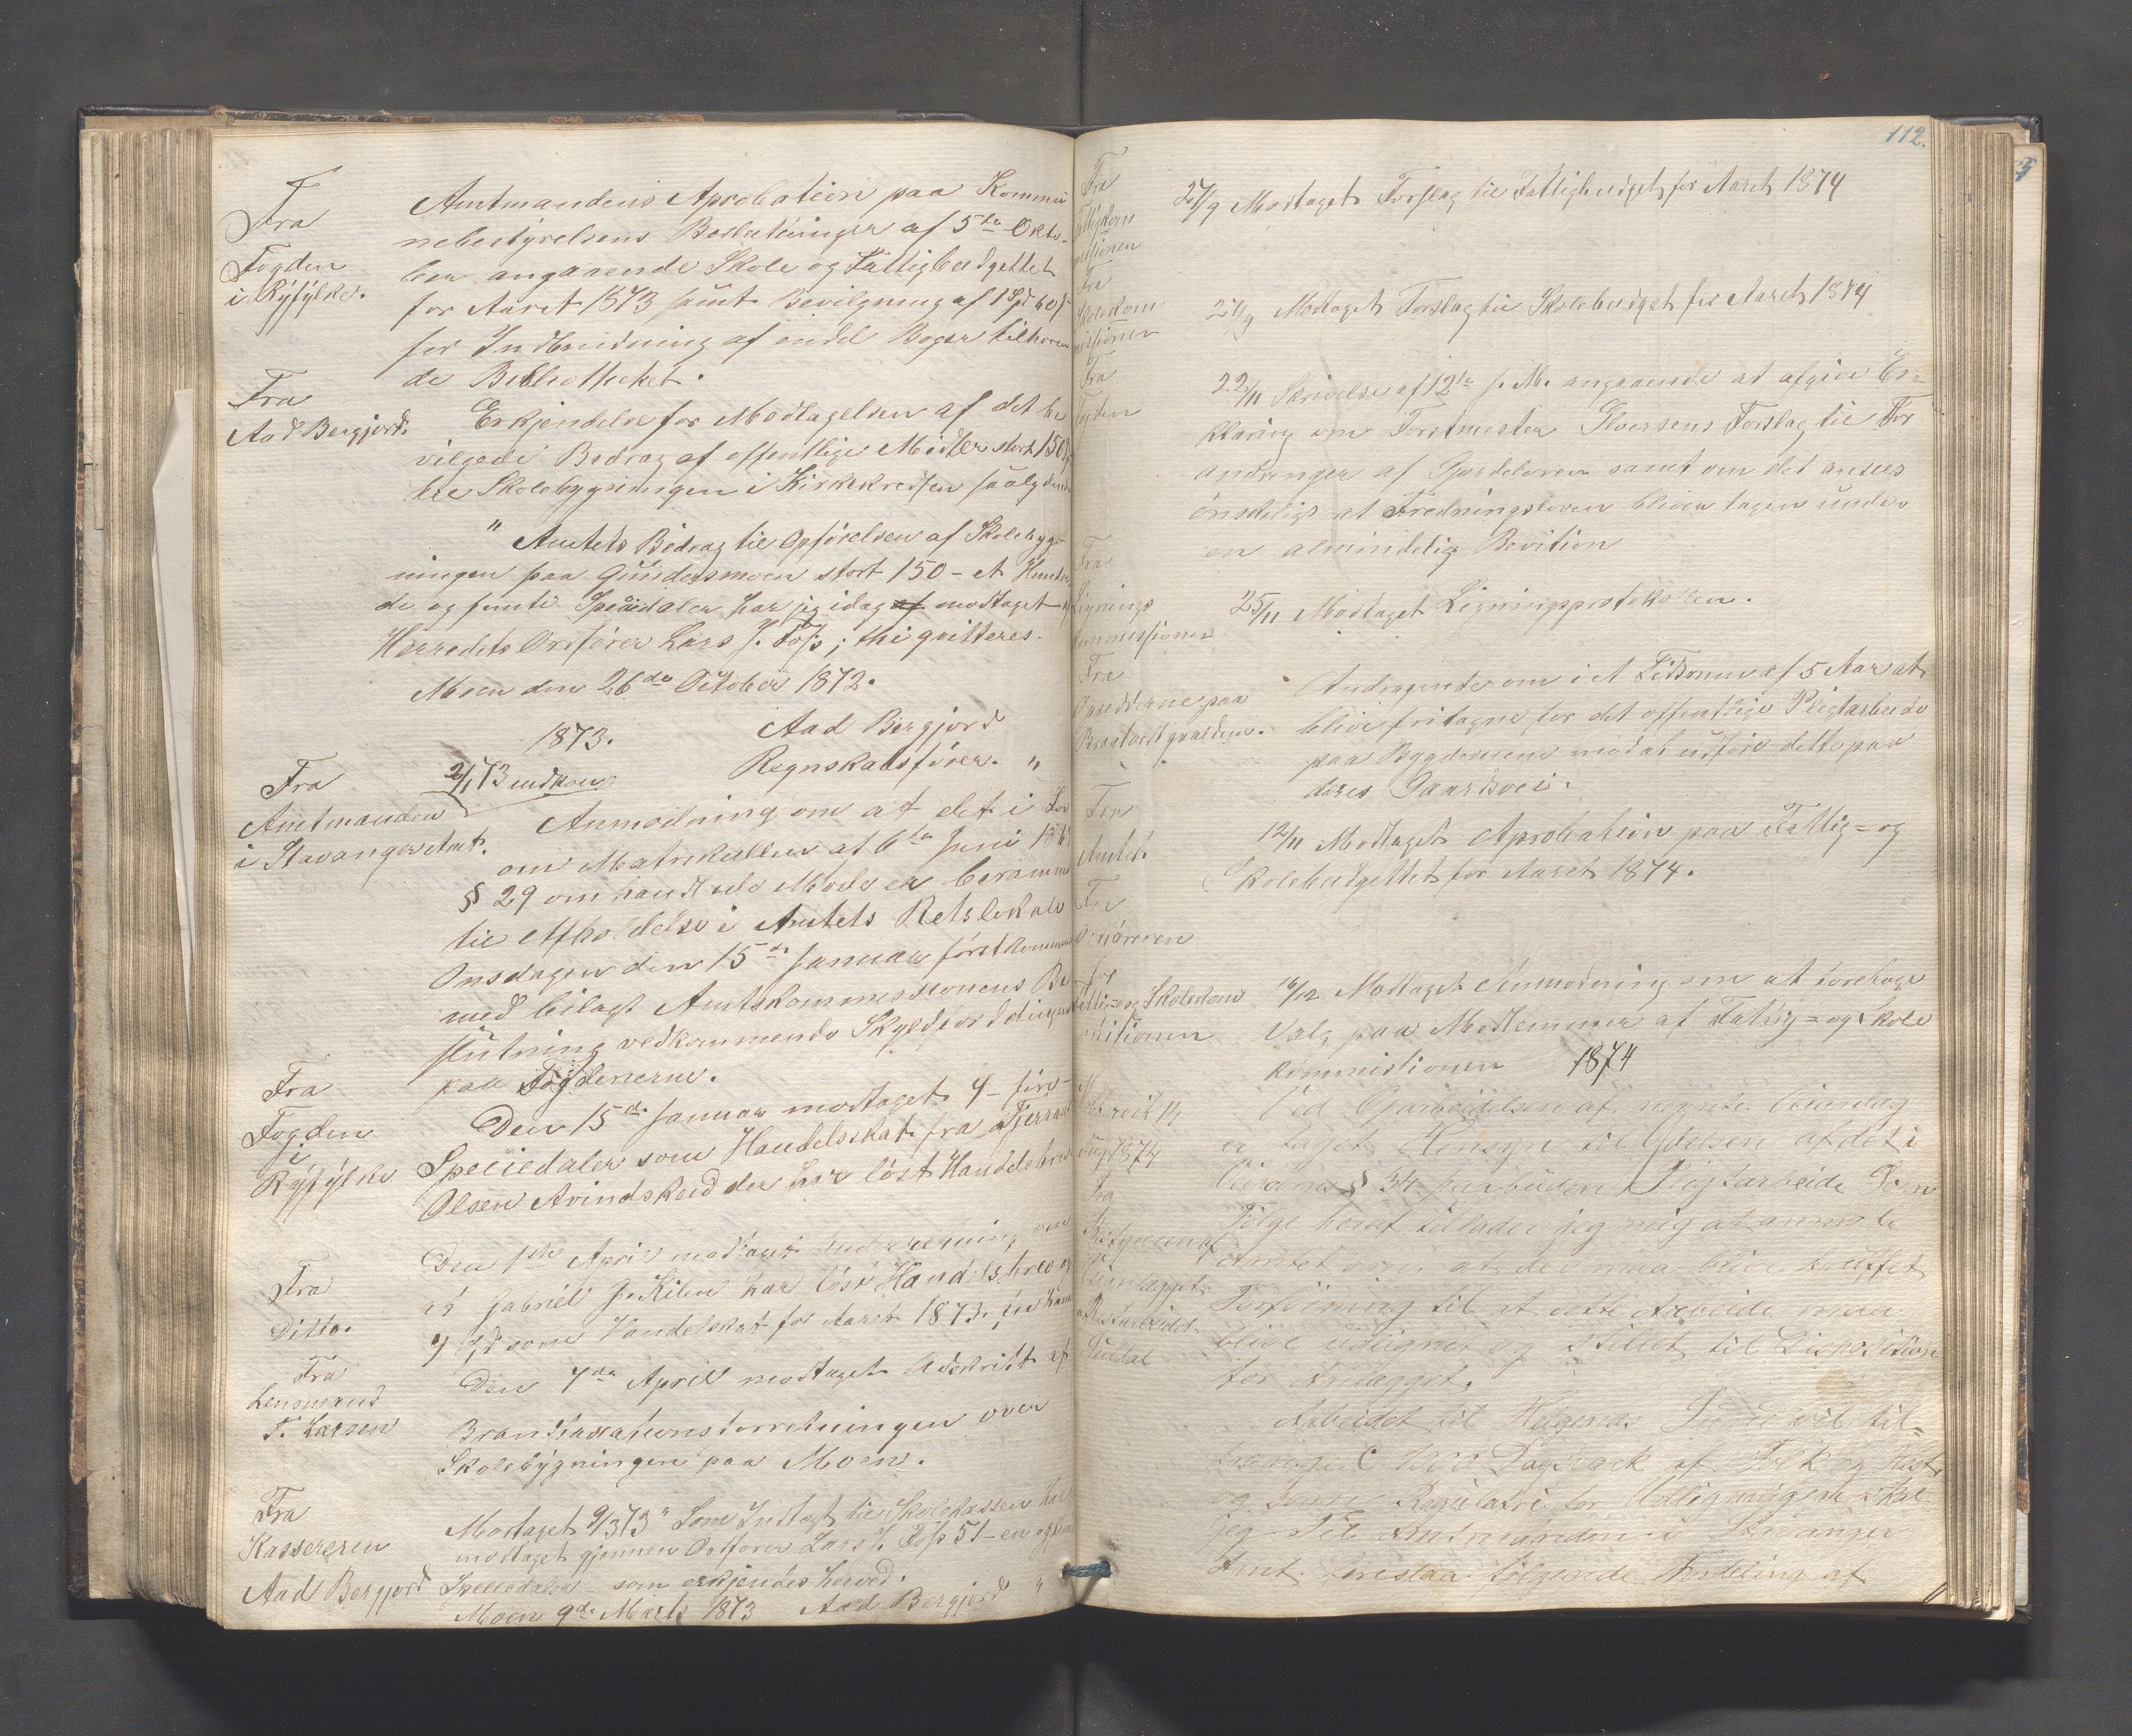 Fra
Fogden
i Ryfylke.
Amtmandens Aprobation paa Kommu
nebestyrelsens Beslutninger af 5te Okto-
ber angaaende Skole og Fattigbudgettet
for Aaret 1873 samt Bevilgning af 1 Spd 60 s
for Indbinding af endel Boger tilhoren
de Bibliotheket.
Fra
Aad Bergjord.
Erkjendelse for Modtagelsen af det be
vilgede Bedrag af offentlige Midler stort 150
til Skolebygningen i Kirkekredsen saalydende
" Amtets Bidrag til Opförelsen af Skolebyg-
ningen paa Gundersmoen stort 150 - et Hundre
de og femti Speciedaler har jeg idag af modtaget af
Herredets Ordförer Lars J. Foss; thi qvitteres.
Moen den 26de October 1872.
Aad Bergjord
Regnskabsförer. "
1873.
Fra
Amtmanden
i Stavanger Amt.
2/1 73 indkom
Anmodning om at det i Lov
om Matrikullen af 6te Juni
§ 29 omhandlede Möde er beramme
til Afholdelse i Amtets Retslokale
Onsdagen den 15de Januar förstkommende
med bilagt Amtskommissionens Be
slutning vedkommende Skyldfordelingen
paa Fogderierne.
Fra
Fogden
i
Ryfylke
Den 15de Januar modtaget 4 - fire -
Speciedaler som Handelsskat fra
Olsen Avindskeid der har löst Handelsbrev
Fra
Ditto.
Den 1ste April modtaget om
at Gabriel J. Kilen har löst Handelsbrev og
4 Spd som Handelskat for Aaret 1873.
Fra
Lensmand
T. Larsen
Den 7de April modtaget Udskrift af
Brandtaxationsforretningen over
Skolebygningen paa Moen.
Fra
Kassereren
Aad Bergjord
Modtaget 9/3 73 " Som Indtægt til Skolekassen har
modtaget gjennem Ordförer Lars J. Foss 51 - en og
Speciedaler - som erkjendes herved.
Moen 9de Marts 1873 Aad Bergjord "
112.
Fra
Fattigkom
missionen
27/9 Modtaget Forslag til Fattigbudget for Aaret 1874
Fra
Skolekom
missionen
27/9 Modtaget Forslag til Skolebudget for Aaret 1874
Fra
Fogden
22/11 Skrivelse af 12te s. M. angaaende at afgive Er-
klæring om Forstmester Gloersens Forslag til For
andringer af Gjerdeloven samt om det ansees
önskeligt at Fredningsloven bliver tagen under
en almindelig Revition
Fra
Lignings
kommissionen
25/11 Modtaget Ligningsprotokollen.
Fra
Opsidderne paa
Braatveitgaarden.
Andragende om i et Tidsrum af 5 Aar at
blive fritagne for det offentlige Pligtarbeide
paa Bygdeveiene mod at udföre dette paa
deres Gaardsvei.
Fra
Amtet
12/11 Modtaget Aprobation paa Fattig= og
Skolebudgettet for Aaret 1874.
Fra
Ordföreren
for
Fattig= og Skolekom
missionen
16/12 Modtaget Anmodning om at foretage
Valg paa Medlemmer af Fattig= og Skole
kommissionen
1874
Fra
Bestyreren af
Veianlægget
Ved Oparbeidelsen af nævnte Veianlæg
er taget Hensyn til Ydelsen af det i
Veilovens § 34 paabudne Pligtarbeide Som
Fölge heraf tillader jeg mig at anmode
Amtet om at der maa blive truffet
Forföining til at dette Arbeide maa
blive udlignet og stillet til Disposition
for Anlægget.
Arbeidet til Helgenæs Sund vil til=
trænge C 1000 Dagværk af Folk og Hest
og som Regulativ for Udligningen skal
jeg til Amtmanden i Stavanger
Amt foreslaa fölgende Fordeling af